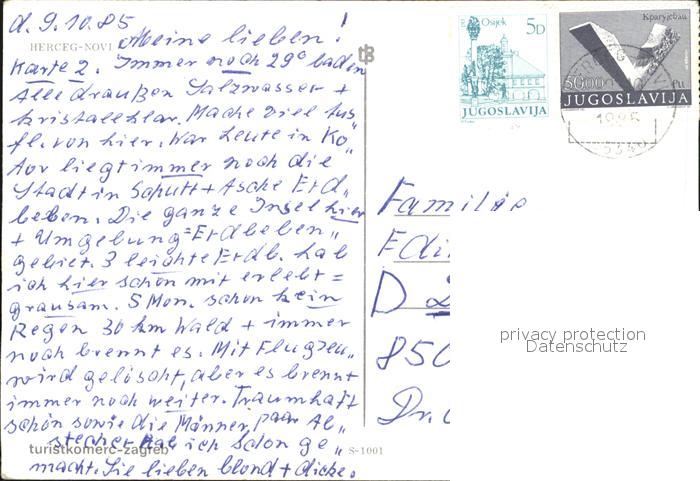 d. 9.10.85
HERCEG-NOVI
Meine lieben!
Karte 2. Immer noch 29° baden
Alle draußen Salzwasser +
kristallklar. Mache viel Aus„
fl. von hier. War heute in Ko„
tor liegt immer noch die
Stadt in Schutt + Asche Erd„
beben. Die ganze Insel hier
+ Umgebung = Erdbeben„
gebiet. 3 leichte Erdb. hab
ich hier schon mit erlebt =
grausam. 5 Mon. schon kein
Regen 30 km Wald + immer
noch brennt es. Mit Flugzeu„
wird gelöscht, aber es brennt
immer noch weiter. Traumhaft
schön sowie die Männer, paar Ab„
stecher hab ich schon ge„
macht. Sie lieben blond + dicke.
turistkomerc-zagreb
S-1001
tzb
Osijek
5D
JUGOSLAVIJA
JUGOSLAVIJA
1985
Familie
D
850
Dr.
privacy protection
Datenschutz